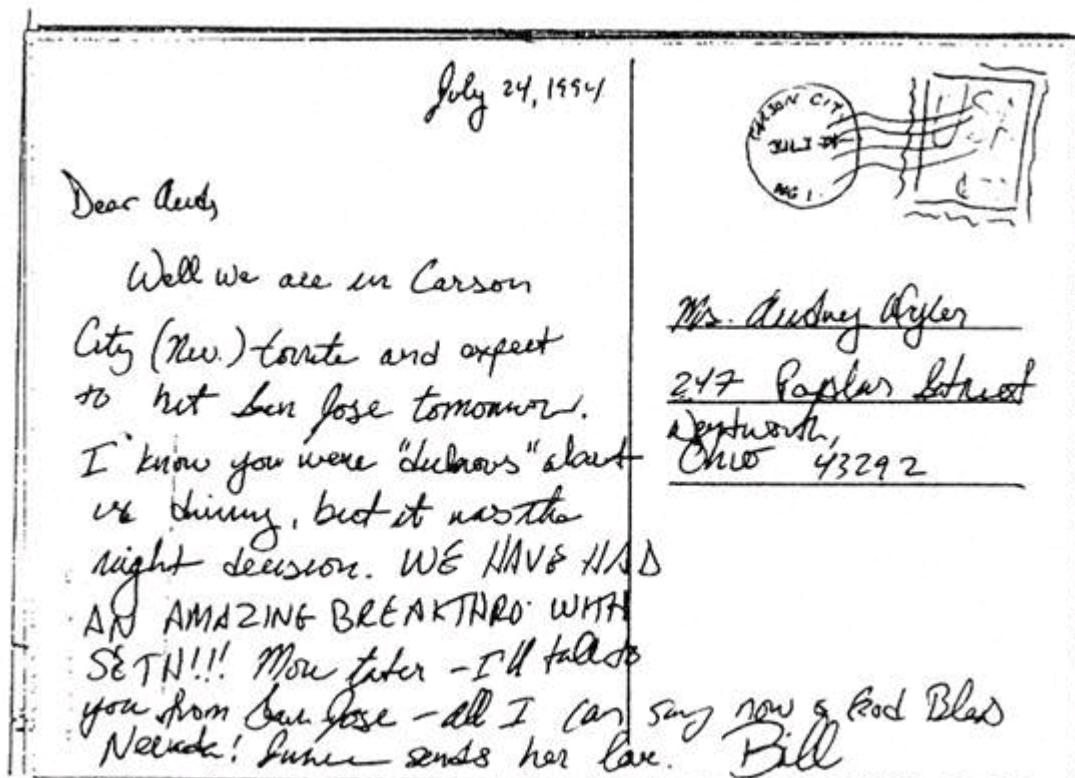 July 24, 1994
Dear Aud,
Well we are in Carson
City (Nev.) tonite and expect
to hit San Jose tomorrow.
I know you were "dubious" about
us driving, but it was the
right decision. WE HAVE HAD
AN AMAZING BREAKTHRO' WITH
SETH!!! More later - I'll talk to
you from San Jose - all I can say now is God Bless
Nevada! June sends her love. Bill
CARSON CIT
Ms. Audrey Wyler
247 Poplar Street
Wentworth,
Ohio 43292